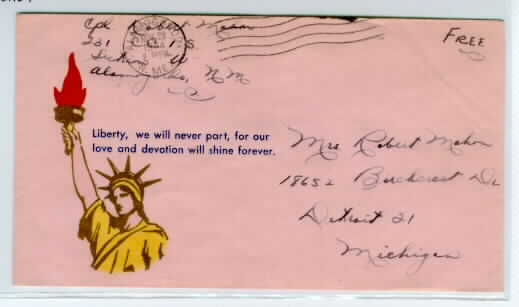 Cpl Robert Mahon
Section
Alamogordo, N M
N. MEX.
FREE
Liberty, we will never part, for our
love and devotion will shine forever.
Mrs Robert Mahon
18652 Birchcrest Dr
Detroit 21
Michigan